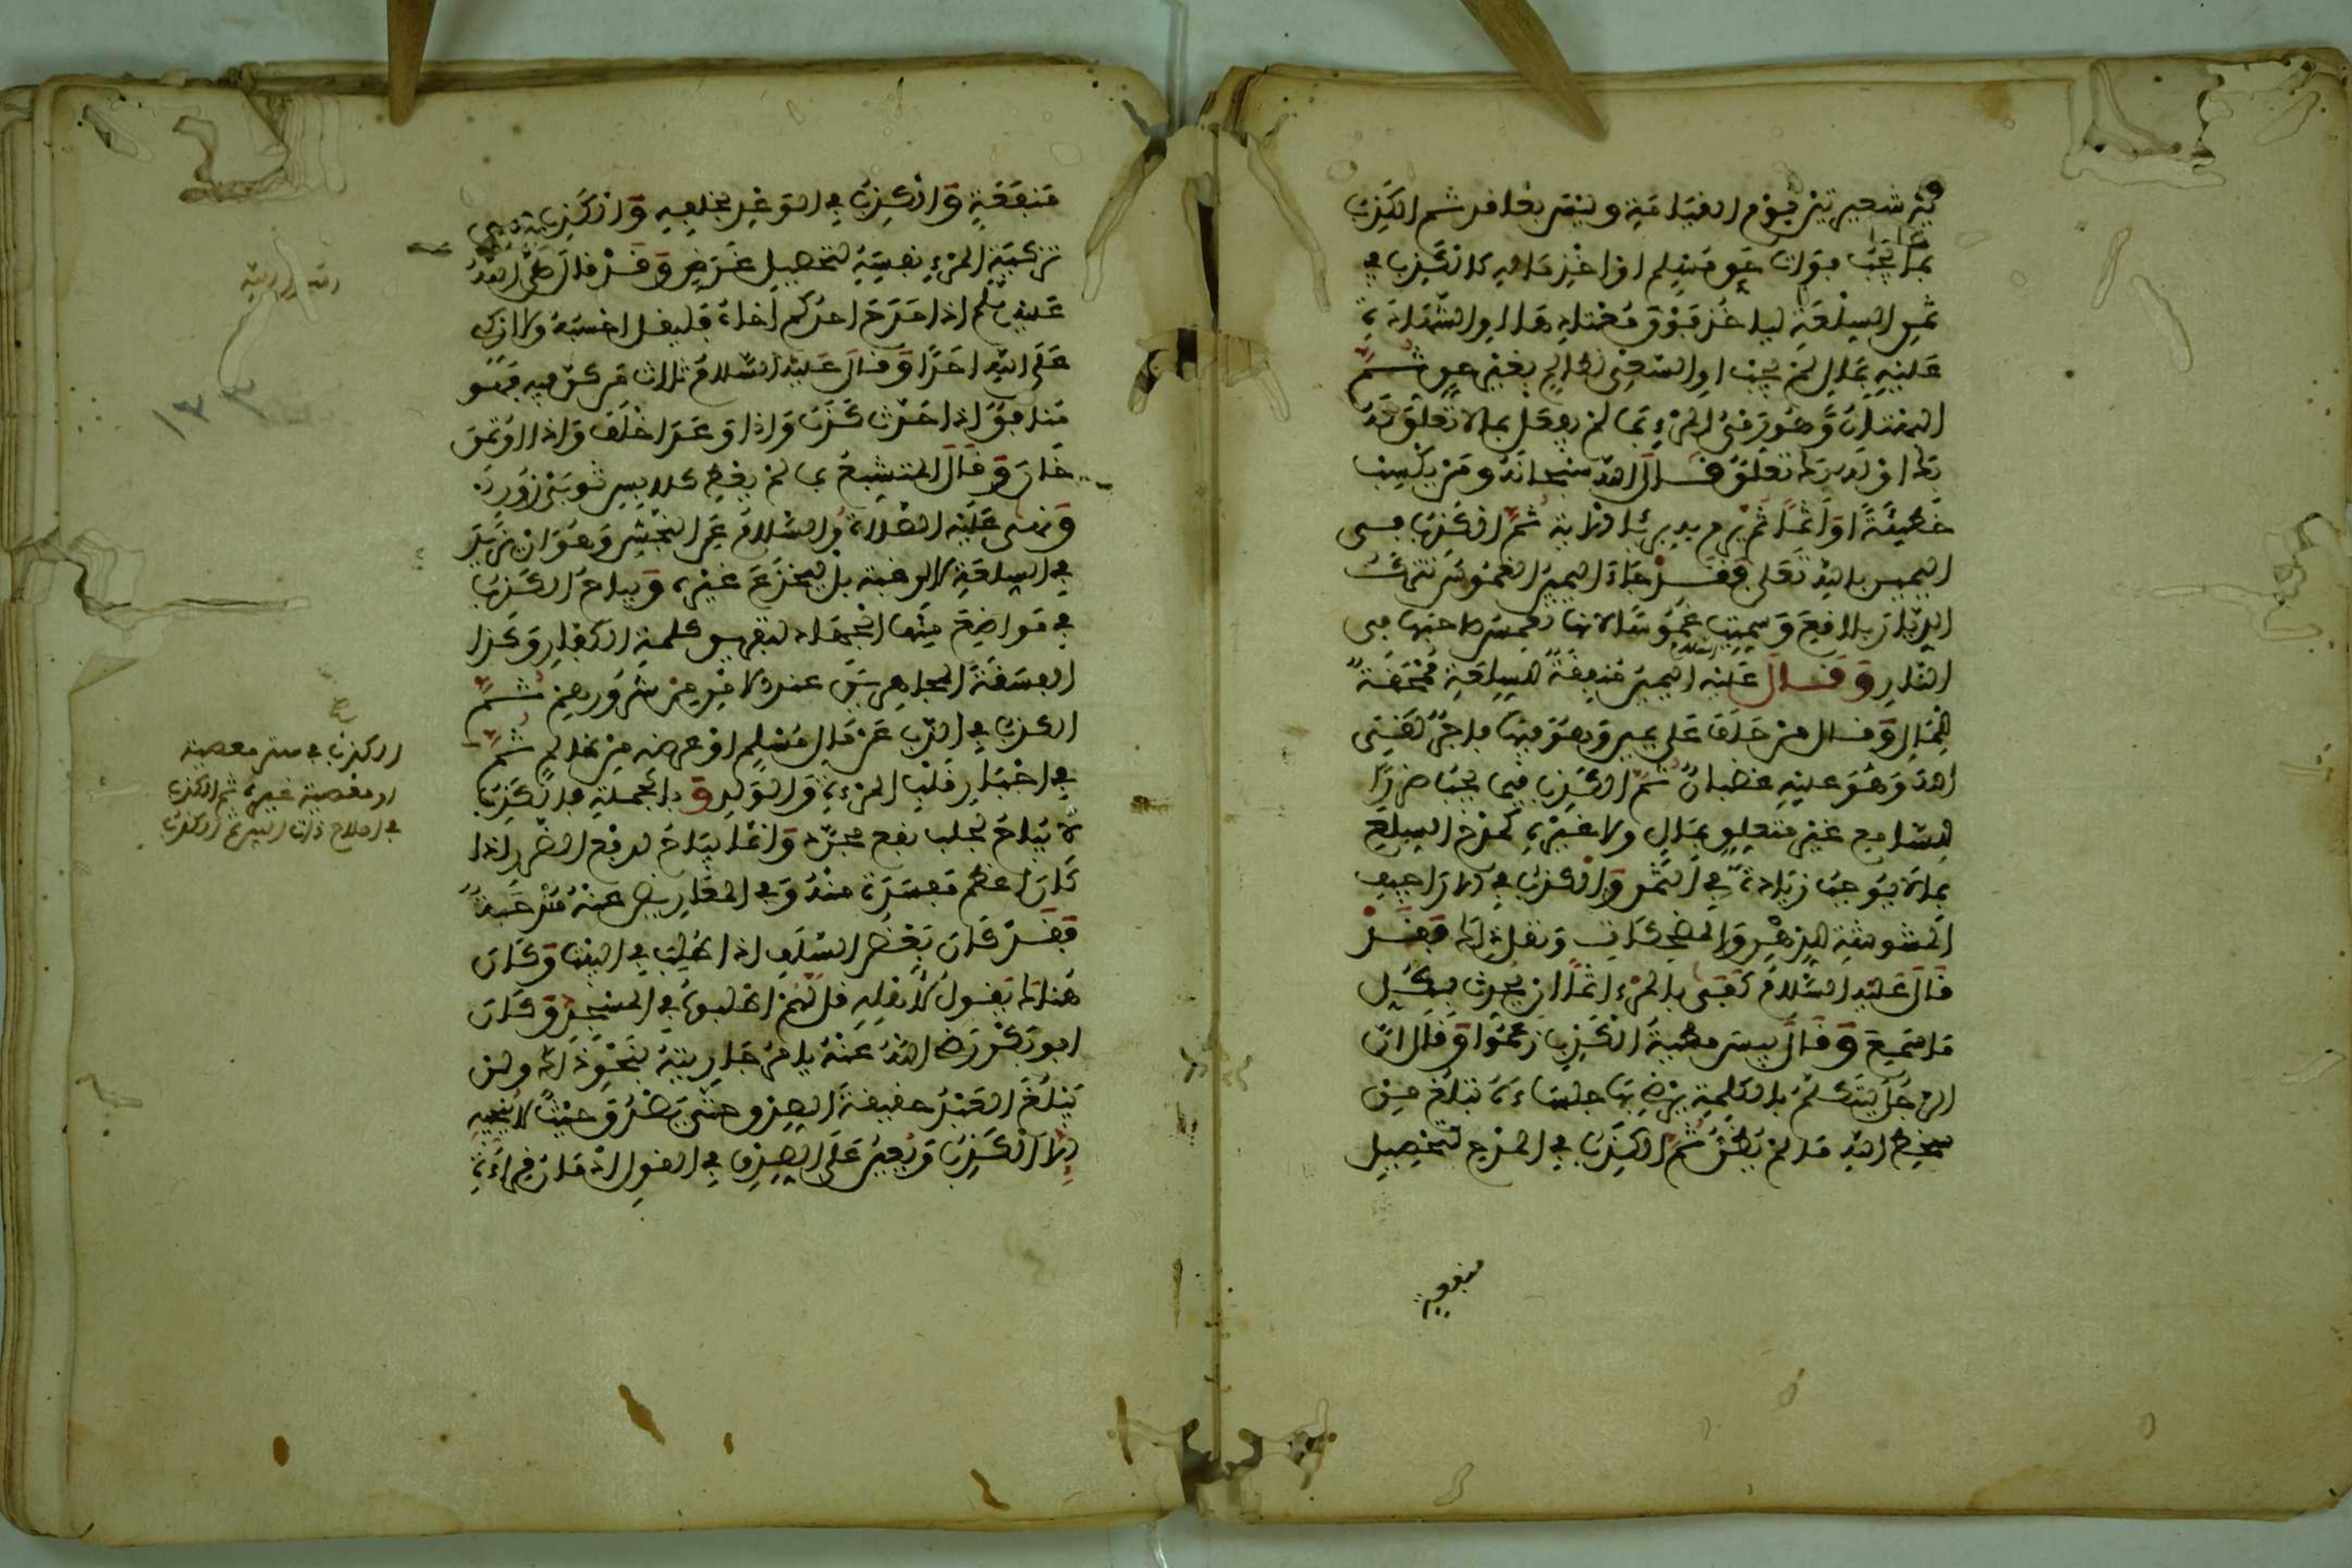 بين شعيرتين يوم القيامة وليس بعاقد ثم الكذب
بما يجب فوات حق مسلم او اخذ ماله كالكذب في
ثمن السلعة لياخذ فوق مختاره هذا او الشهادة
عليه بمال لم يجب او السعي لظالم بغير حق ثم
البهتان وهو رمي المرء بما لم يفعل مما لا تعلق له
بك او لديك تعلق قال الله سبحانه ومن يكسب
خطيئة او اثما ثم يرم به بريئا الاية ثم الكذب في
اليمين بالله تعلى فقد جاء اليمين الغموس تترك
الديار بلاقع وسميت غموسا لانها تغمس صاحبها في
النار وقال عليه السلام اليمين منفقة للسلعة ممحقة
للمال وقال من حلف على يمين وهو فيها فاجر لقي
الله وهو عليه غضبان ثم الكذب فيما يجب ضررا
للسامع غير متعلق بمال ولا غيره كمدح السلع
بما لا يوجب زيادة في الثمن والكذب في الاراجيف
المشوشة للذهن والمضحكات ونقل ذلك فقد
قال عليه السلام كفى بالمرء اثما ان يحدث بكل
ما سمع وقال بيس مطية الكذب زعموا وقال ان
الرجل ليتكلم بالكلمة يرضي بها جلساءه تبلغ من
سخط الله ما لم يظن ثم الكذب في المدح لتحصيل
منفعة
منفعة والكذب في الوعد بخلفه والكذب في
تزكية المرء نفسه لتحصيل غرض وقد قال صلى الله
عليه وسلم اذا مدح احدكم اخاه فليقل احسبه ولا ازكي
على الله احدا وقال عليه السلام ثلاث من كن فيه فهو
منافق اذا حدث كذب واذا وعد اخلف واذا اوتمن
خان وقال المتشبع بما لم يعط كلابس ثوبي زور
ونهى عليه الصلاة والسلام عن النجش وهو ان يزيد
في السلعة لا لرغبة بل ليخدع غيره ويباح الكذب
في مواضع منها الجهاد لتفريق كلمة الكفار وكذا
الفسقة المجاهرين عند الامن من شرورهم ثم
الكذب في الذب عن مال مسلم او عرضه من ظالم ثم
في اخبار قلب المرءة والولد وبالجملة فالكذب
لا يباح لجلب نفع مجرد وانما يباح لدفع الضرر اذا
كان اعظم مفسدة منه وفي المعاريض عنه مندوحة
فقد كان بعض السلف اذا طلب في البيت وكان
هنالك يقول لاهله قل لهم اطلبوه في المسجد وكان
ابو بكر رضي الله عنه يامر جاريته بنحو ذلك ولن
يبلغ العبد حقيقة الصدق حتى يصدق حيث لا ينجيه
الا الكذب ويعين على الصدق في القول الله قراءة
١٣٣
الكذب في ستر معصية
او معصية غيره ثم الكذب
في اصلاح ذات البين ثم الكذب